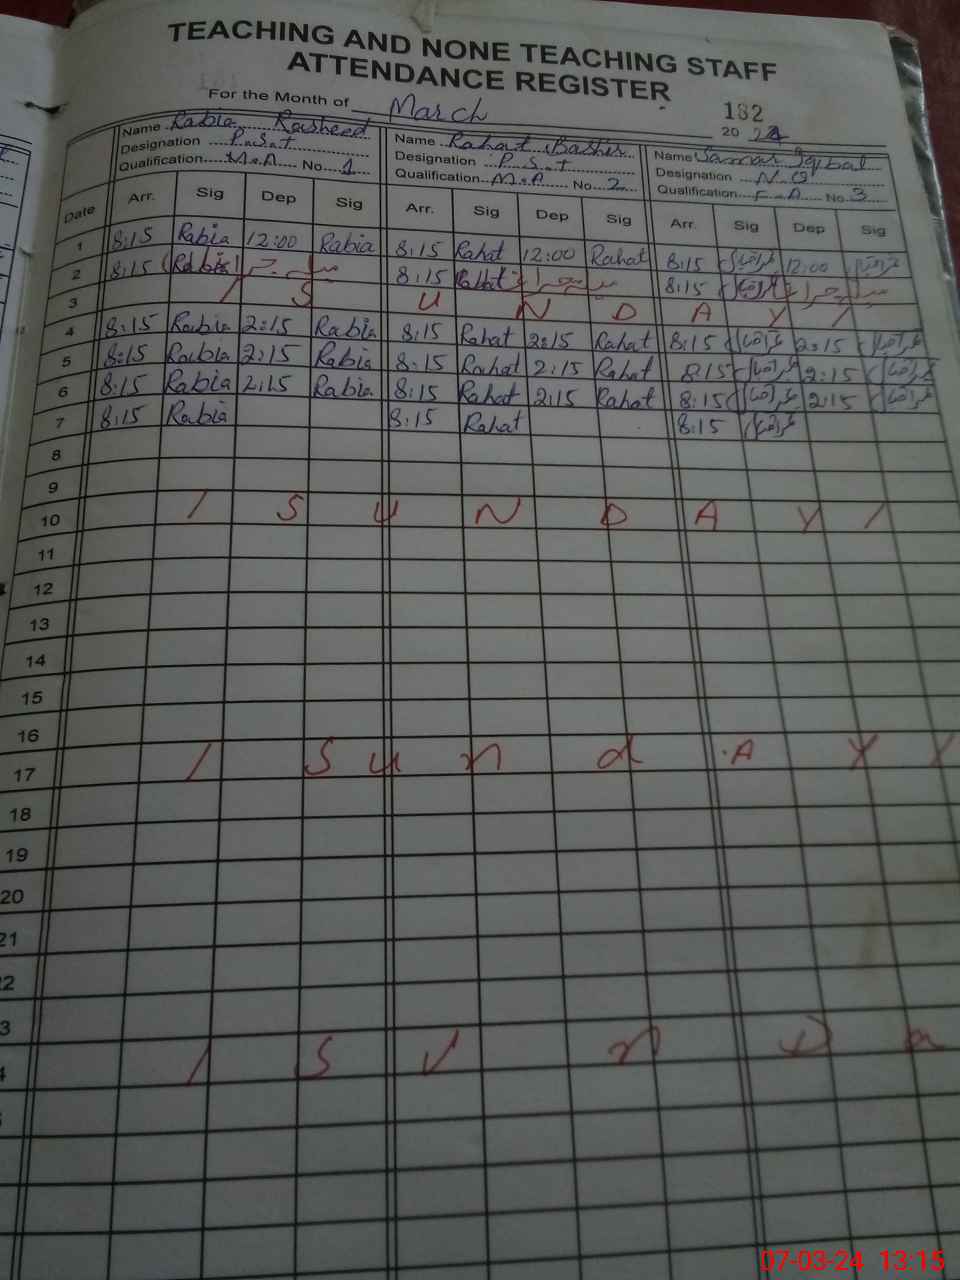 TEACHING AND NONE TEACHING STAFF
ATTENDANCE REGISTER
For the Month of March 132
20 24
Name Rabia Rasheed Name Rahat Bashir Name Samar Iqbal
Designation P.S.T Designation P.S.T Designation N.Q
Qualification M.A No. 1 Qualification M.A No 2 Qualification F.A No 3
Date Arr. Sig Dep Sig Arr. Sig Dep Sig Arr. Sig Dep Sig
1 8:15 Rabia 12:00 Rabia 8:15 Rahat 12:00 Rahat 8:15 12:00
2 8:15 Rabia 8:15 Rahat 8:15
3 / S U N D A Y /
4 8:15 Rabia 2:15 Rabia 8:15 Rahat 2:15 Rahat 8:15 2:15
5 8:15 Rabia 2:15 Rabia 8:15 Rahat 2:15 Rahat 8:15 2:15
6 8:15 Rabia 2:15 Rabia 8:15 Rahat 2:15 Rahat 8:15 2:15
7 8:15 Rabia 8:15 Rahat 8:15
8
9
10 / S U N D A Y /
11
12
13
14
15
16
17 / S u n d A Y /
18
19
20
21
22
23
24 / S U n D a
07-03-24 13:15